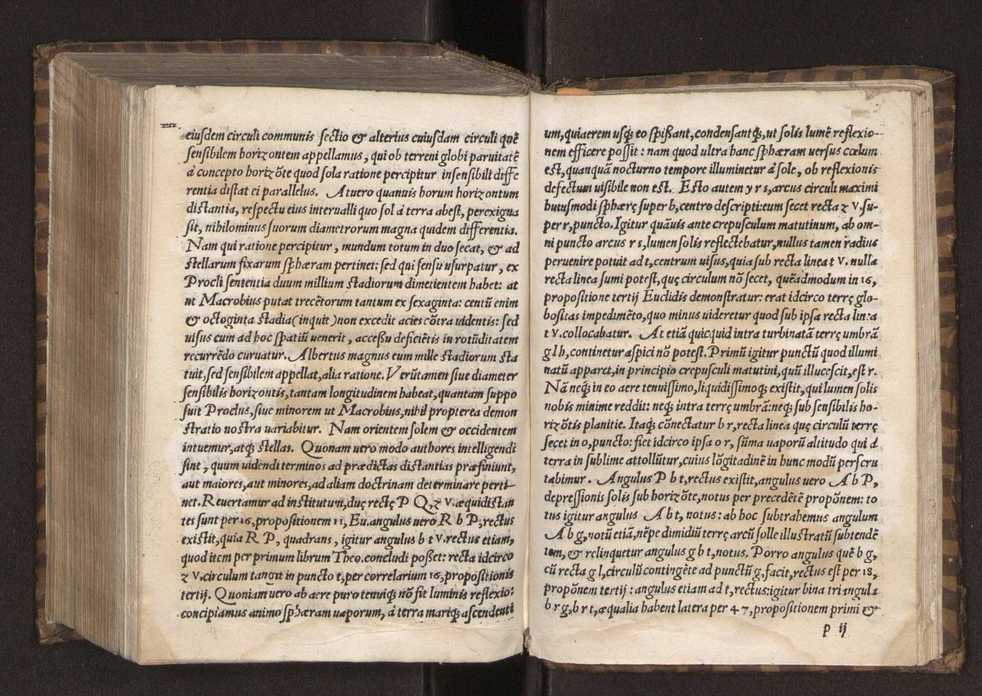 eiusdem circuli communis sectio & alterius cuiusdam circuli quē
sensibilem horizontem appellamus, qui ob terreni globi paruitatē
à concepto horizōte quod sola ratione percipitur insensibili diffe
rentia distat ei parallelus. At uero quanuis horum horizontum
distantia, respectu eius interualli quo sol à terra abest, perexigua
sit, nihilominus suorum diametrorum magna quidem differentia.
Nam qui ratione percipitur, mundum totum in duo secat, & ad
stellarum fixarum sphæram pertinet: sed qui sensu usurpatur, ex
Procli sententia duum millium stadiorum dimetientem habet: at
ut Macrobius putat trecētorum tantum ex sexaginta: centū enim
& octoginta stadia (inquit) non excedit acies cōtra uidentis: sed
uisus cum ad hoc spatiū uenerit, accessu deficiētis in rotūditatem
recurrēdo curuatur. Albertus magnus eum mille stadiorum sta
tuit, sed sensibilem appellat, alia ratione. Verūtamen siue diameter
sensibilis horizontis, tantam longitudinem habeat, quantam suppo
suit Proclus, siue minorem ut Macrobius, nihil propterea demon
stratio nostra uariabitur. Nam orientem solem & occidentem
intuemur, atq; stellas. Quonam uero modo authores intelligendi
sint, quum uidendi terminos ad prædictas distantias præfiniunt,
aut maiores, aut minores, ad aliam doctrinam determinare perti-
net. Reuertamur ad institutum, duę rectę P Q, z v. æquidistan
tes sunt per 28, propositionem 11, Eu. angulus uero R b P, rectus
existit, quia R P, quadrans, igitur angulus b t v. rectus etiam,
quod item per primum librum Theo. concludi posset: recta idcirco
z v, circulum tangit in puncto t, per correlarium 16, propositionis
tertij. Quoniam uero ab aere puro tenuiq; nō fit luminis reflexio:
concipiamus animo sphæram uaporum, à terra mariq; ascendenti
um, qui aerem usq; eo spissant, condensantq;, ut solis lumē reflexio-
nem efficere possit: nam quod ultra hanc sphæram uersus cœlum
est, quanquā nocturno tempore illuminetur à sole, ob reflexionis
defectum uisibile non est. Esto autem y r s, arcus circuli maximi
huiusmodi sphęrę super b, centro descripti: eum secet recta z v. su-
per r, puncto. Igitur quāuis ante crepusculum matutinum, ab om-
ni puncto arcus r s, lumen solis reflectebatur, nullus tamen radius
peruenire potuit ad t, centrum uisus, quia sub recta linea t v. nulla
recta linea sumi potest, quę circulum nō secet, quēadmodum in 16,
propositione tertij Euclidis demonstratur: erat idcirco terrę glo-
bositas impedimēto, quo minus uideretur quod sub ipsa recta linea
t v. collocabatur. At etiā quicquid intra turbinatā terrę umbrā
g l h, continetur aspici nō potest. Primū igitur punctū quod illumi
natū apparet, in principio crepusculi matutini, quū illucescit, est r.
Nā neq; in eo aere tenuissimo, liquidissimoq; existit, qui lumen solis
nobis minime reddit: neq; intra terrę umbrā: neq; sub sensibilis ho-
rizōtis planitie. Itaq; cōnectatur b r, recta linea quę circulū terrę
secet in o, puncto: fiet idcirco ipsa o r, sūma uaporū altitudo qui à
terra in sublime attollūtur, cuius lōgitudinē in hunc modū perscru
tabimur. Angulus P b t, rectus existit, angulus uero A b P,
depressionis solis sub horizōte, notus per precedētē propōnem: to
tus igitur angulus A b t, notus: ab hoc subtrahemus angulum
A b g, notū etiā, nēpe dimidiū terrę arcū solle illustratū subtendē
tem, & relinquetur angulus g b t, notus. Porro angulus quē b g,
cū recta g l, circulū contingēte ad punctū g, facit, rectus est per 18,
propōnem tertij: angulus etiam ad t, rectus: igitur bina triangula
b r g, b r t, æqualia habent latera per 47, propositionem primi &
p ij